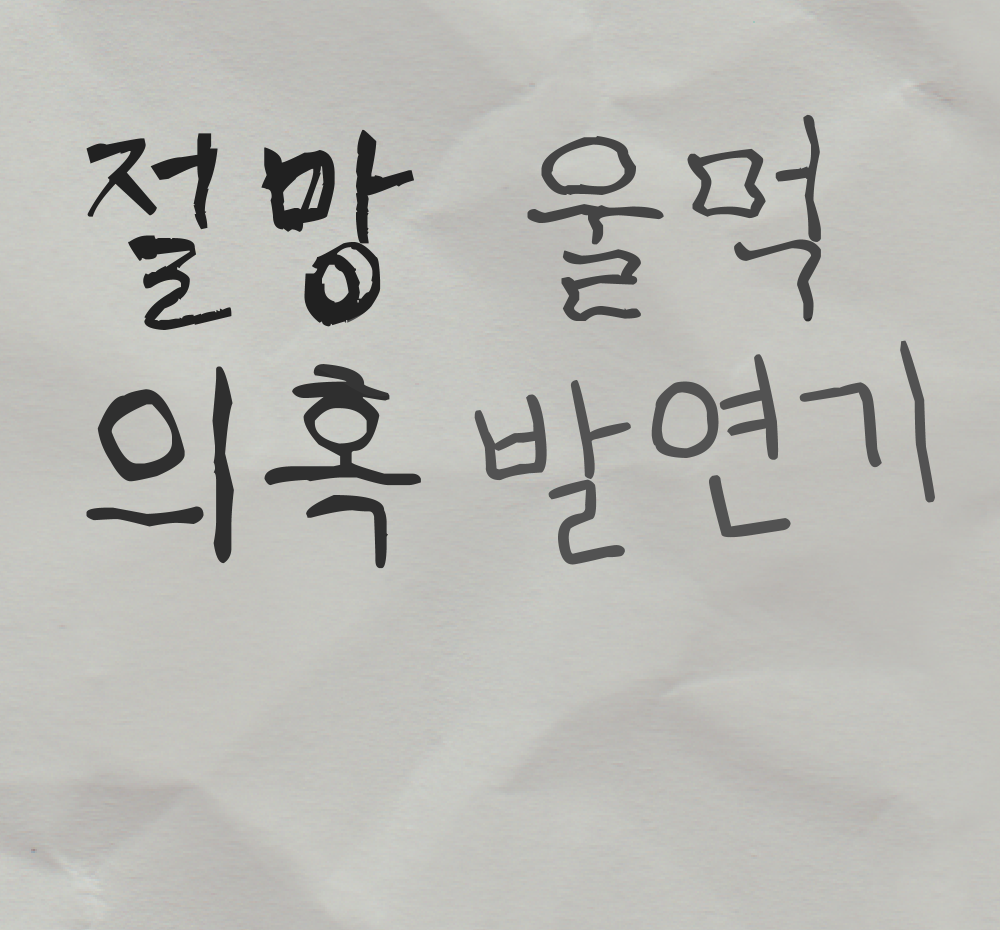 절망 울먹
의혹 발연기